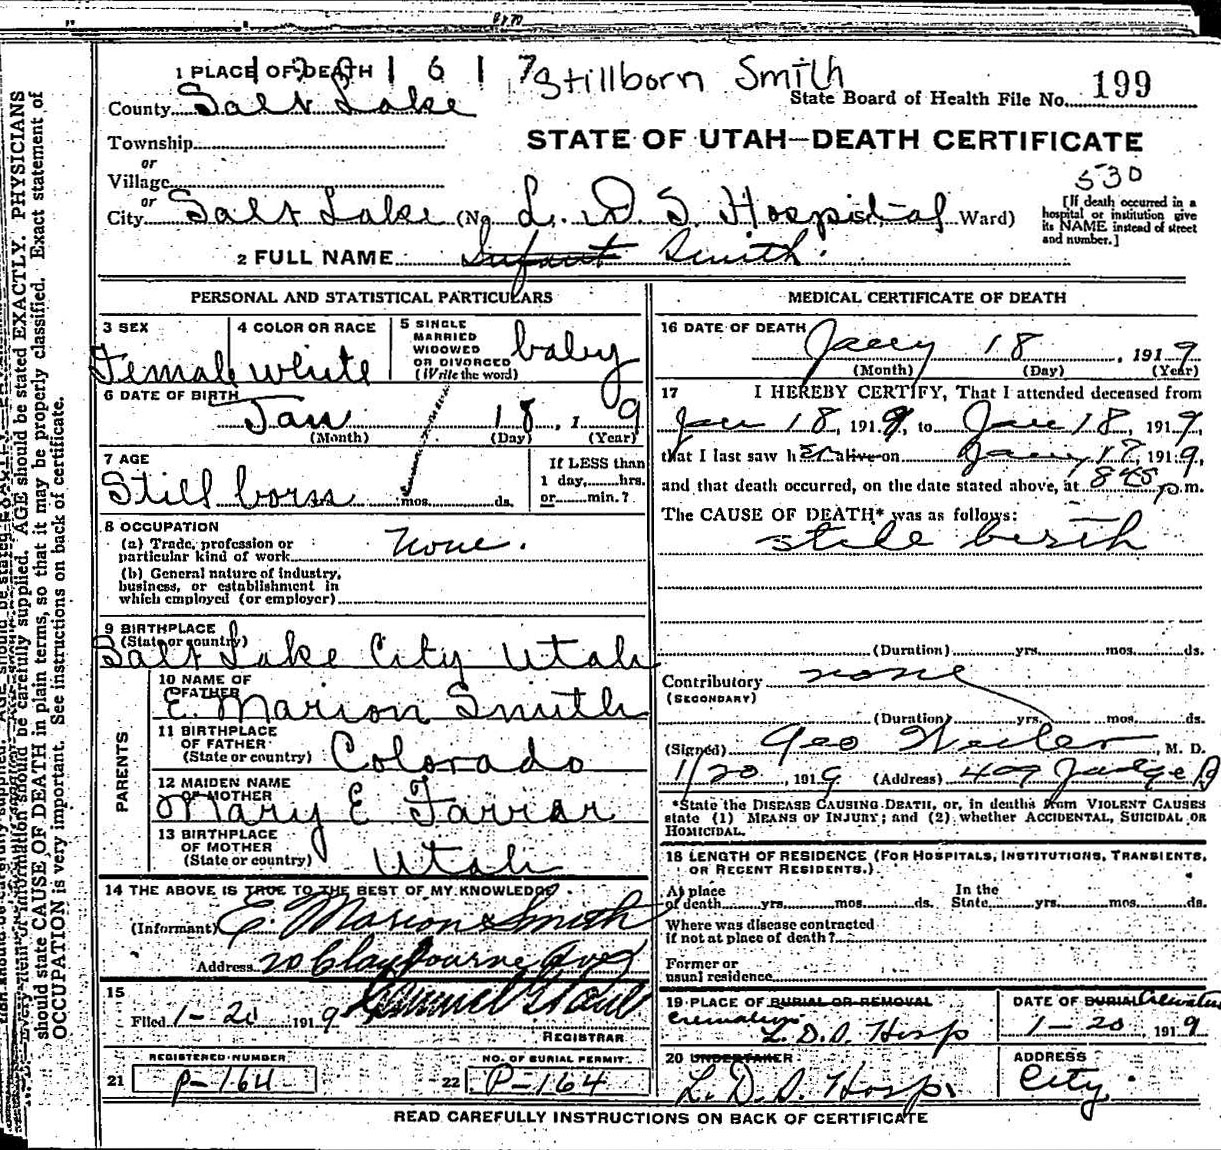 1 PLACE OF DEATH
Stillborn Smith
County Salt Lake
State Board of Health File No. 199
Township
STATE OF UTAH—DEATH CERTIFICATE
or
Village
530
or
City Salt Lake (No. L. D. S Hospital St., Ward)
[If death occurred in a hospital or institution give its NAME instead of street and number.]
2 FULL NAME Infant Smith
PERSONAL AND STATISTICAL PARTICULARS
3 SEX Female
4 COLOR OR RACE white
5 SINGLE MARRIED WIDOWED OR DIVORCED (Write the word) baby
6 DATE OF BIRTH Jan 18, 1 9
(Month) (Day) (Year)
7 AGE
Still born mos. ds.
If LESS than
1 day, hrs.
or min.?
8 OCCUPATION
(a) Trade, profession or
particular kind of work none.
(b) General nature of industry,
business, or establishment in
which employed (or employer)
9 BIRTHPLACE
(State or country)
Salt Lake City Utah
PARENTS
10 NAME OF FATHER
E. Marion Smith
11 BIRTHPLACE
OF FATHER
(State or country) Colorado
12 MAIDEN NAME
OF MOTHER
Mary E Farrar
13 BIRTHPLACE
OF MOTHER
(State or country) Utah
14 THE ABOVE IS TRUE TO THE BEST OF MY KNOWLEDGE
(Informant) E. Marion Smith
Address 20 Claybourne Ave
15
Filed 1-20 1919
REGISTRAR
REGISTERED NUMBER
21 P-164
NO. OF BURIAL PERMIT
22 P-164
MEDICAL CERTIFICATE OF DEATH
16 DATE OF DEATH Jany 18, 1919
(Month) (Day) (Year)
17 I HEREBY CERTIFY, That I attended deceased from
Jan 18, 1919, to Jan 18, 1919,
that I last saw h alive on Jany 17, 1919,
and that death occurred, on the date stated above, at 845 p.m.
The CAUSE OF DEATH* was as follows:
stile birth
(Duration) yrs. mos. ds.
Contributory none
(SECONDARY)
(Duration) yrs. mos. ds.
(Signed) Geo , M. D.
1/20 1919 (Address) 409 Judge B
*State the DISEASE CAUSING DEATH, or, in deaths from VIOLENT CAUSES
state (1) MEANS OF INJURY; and (2) whether ACCIDENTAL, SUICIDAL OR
HOMICIDAL.
18 LENGTH OF RESIDENCE (FOR HOSPITALS, INSTITUTIONS, TRANSIENTS,
OR RECENT RESIDENTS.)
At place
of death yrs. mos. ds.
In the
State yrs. mos. ds.
Where was disease contracted
if not at place of death?
Former or
usual residence
19 PLACE OF BURIAL OR REMOVAL
Cremation
L.D.S. Hosp
DATE OF BURIAL Cremation
1-20 1919
20 UNDERTAKER
L. D. S. Hosp.
ADDRESS
City.
READ CAREFULLY INSTRUCTIONS ON BACK OF CERTIFICATE
should be carefully supplied. AGE should be stated EXACTLY. PHYSICIANS
should state CAUSE OF DEATH in plain terms, so that it may be properly classified. Exact statement of
OCCUPATION is very important. See instructions on back of certificate.